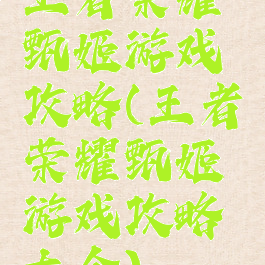 王者荣耀
甄姬游戏
攻略(王者
荣耀甄姬
游戏攻略
大全)